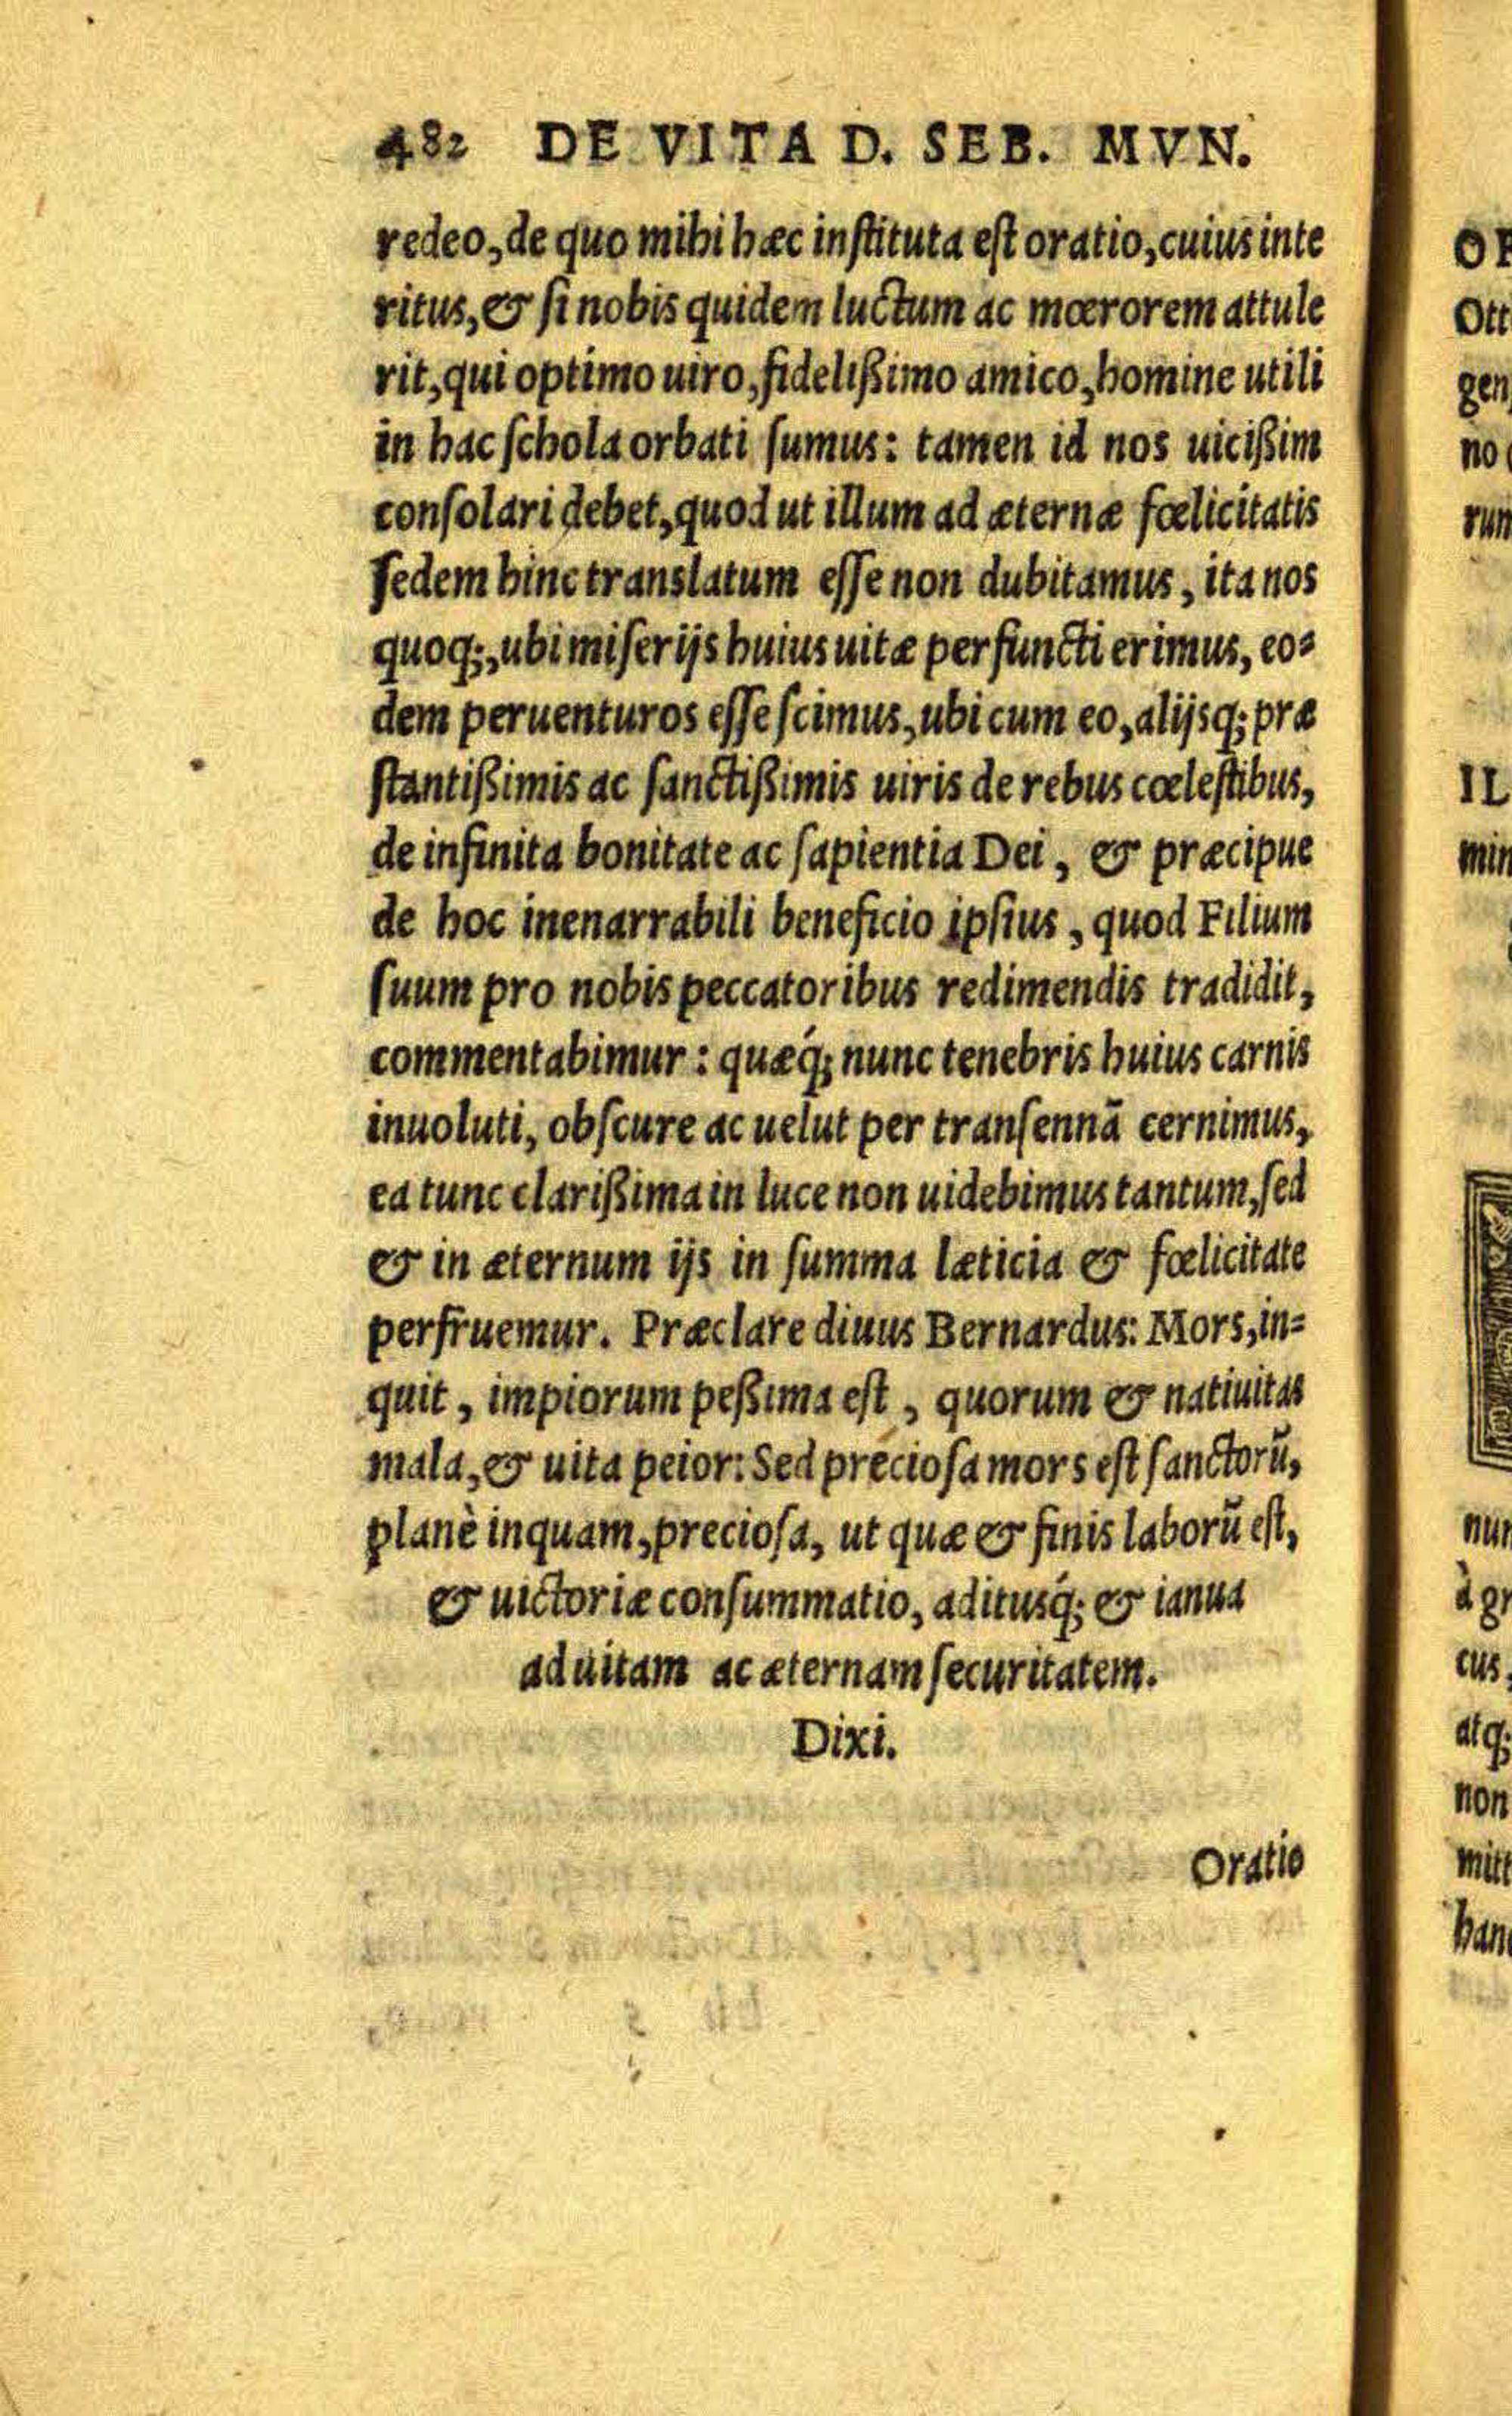 482 DE VITA D. SEB. MVN.
redeo, de quo mihi hæc inſtituta eſt oratio, cuius inte
ritus, & ſi nobis quidem luctum ac mœrorem attule
rit, qui optimo uiro, fideliſſimo amico, homine utili
in hac ſchola orbati ſumus: tamen id nos uiciſſim
conſolari debet, quod ut illum ad æternæ fœlicitatis
ſedem hinc translatum eſſe non dubitamus, ita nos
quoq;, ubi miſerijs huius uitæ perfuncti erimus, eo=
dem peruenturos eſſe ſcimus, ubi cum eo, alijsq; præ
ſtantißimis ac ſanctißimis uiris de rebus cœleſtibus,
de infinita bonitate ac ſapientia Dei, & præcipue
de hoc inenarrabili beneficio ipſius, quod Filium
ſuum pro nobis peccatoribus redimendis tradidit,
commentabimur: quæq́; nunc tenebris huius carnis
inuoluti, obſcure ac uelut per tranſennā cernimus,
ea tunc clarißima in luce non uidebimus tantum, ſed
& in æternum ijs in ſumma læticia & fœlicitate
perfruemur. Præclare diuus Bernardus: Mors, in=
quit, impiorum peßima eſt, quorum & natiuitas
mala, & uita peior: Sed precioſa mors eſt ſanctorū,
planè inquam, precioſa, ut quæ & finis laborū eſt,
& uictoriæ conſummatio, aditusq́; & ianua
ad uitam ac æternam ſecuritatem.
Dixi.
Oratio
Ott
gen
no
run
IL
min
nun
à gr
cus,
atq;
non
mitt
han